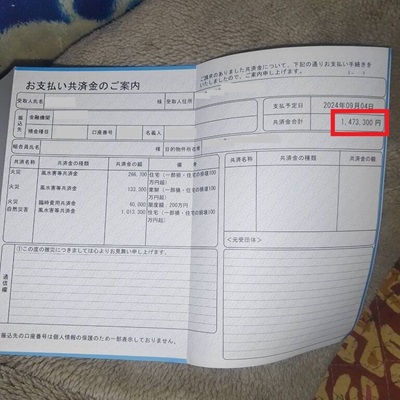 お支払い共済金のご案内
ご請求のありました共済金について、下記の通りお支払い手続きを
いたしましたので、ご案内申し上げます。
受取人氏名
様
受取人住所
支払予定日
2024年09月04日
共済金合計
1,473,300円
振込先
金融機関
預金種目
口座番号
名義人
組合員氏名
様
目的物件所在
共済名称
共済金の種類
共済金の額
備考
共済名称
共済金の種類
共済金の額
火災
風水害等共済金
住宅(一部
万円超)
火災
風水害等共済金
133,300
万円超)
火災
臨時費用共済金
40,000
限度額 200万円
自然災害
風水害等共済金
1,013,300
住宅(一部
万円超)
通信欄
①この度の被災につきましては心よりお見舞い申し上げます。
<元受団体>
振込先の口座番号は個人情報の保護のため一部表示しておりません。